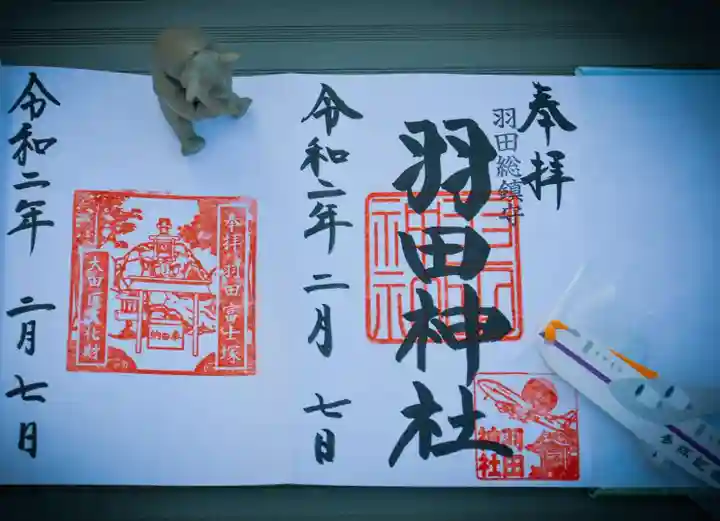 奉拝
羽田総鎮守
羽田神社
令和二年 二月 七日
羽田
神社
奉拝 羽田富士塚
大田区文化財
令和二年 二月 七日